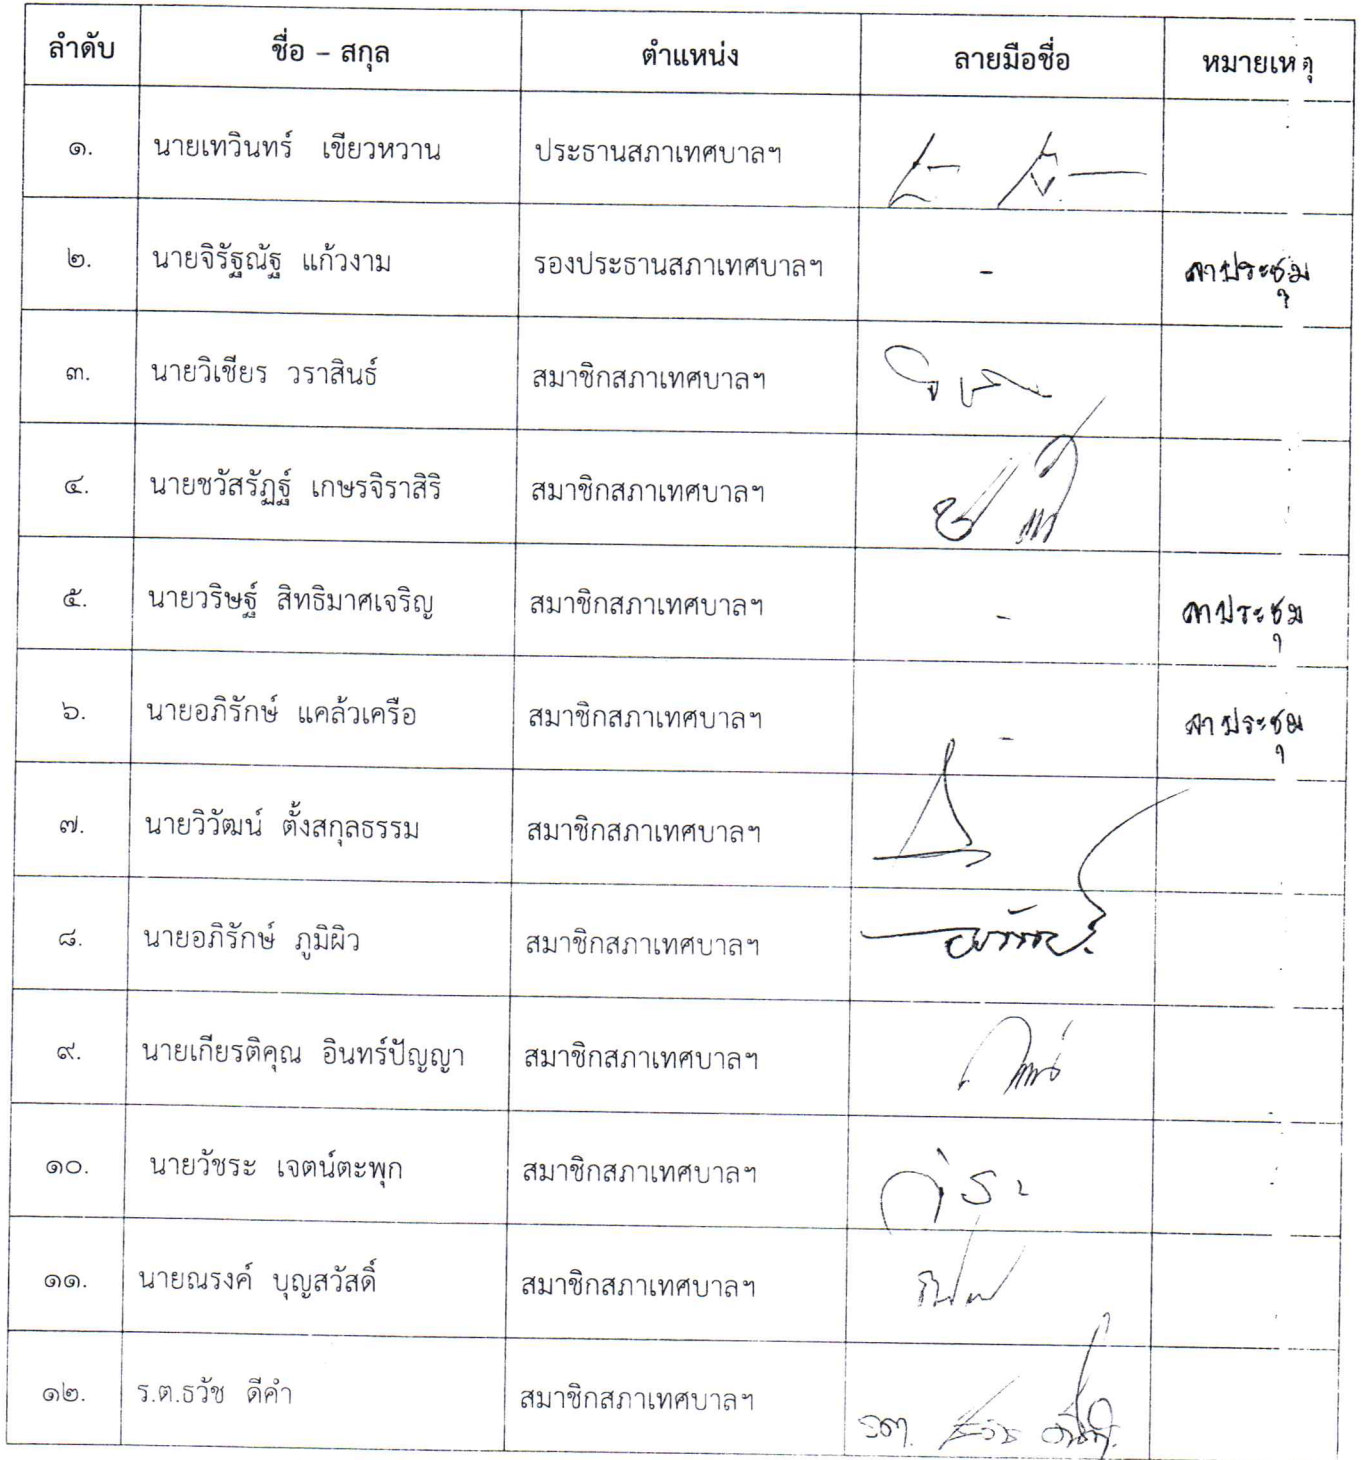 ลำดับ ชื่อ – สกุล ตำแหน่ง ลายมือชื่อ หมายเหตุ
๑. นายเทวินทร์ เขียวหวาน ประธานสภาเทศบาลฯ
๒. นายจิรัฐณัฐ แก้วงาม รองประธานสภาเทศบาลฯ - ลาประชุม
๓. นายวิเชียร วราสินธ์ สมาชิกสภาเทศบาลฯ
๔. นายชวัสรัฏฐ์ เกษรจิราสิริ สมาชิกสภาเทศบาลฯ
๕. นายวริษฐ์ สิทธิมาศเจริญ สมาชิกสภาเทศบาลฯ - ลาประชุม
๖. นายอภิรักษ์ แคล้วเครือ สมาชิกสภาเทศบาลฯ - ลาประชุม
๗. นายวิวัฒน์ ตั้งสกุลธรรม สมาชิกสภาเทศบาลฯ
๘. นายอภิรักษ์ ภูมิผิว สมาชิกสภาเทศบาลฯ
๙. นายเกียรติคุณ อินทร์ปัญญา สมาชิกสภาเทศบาลฯ
๑๐. นายวัชระ เจตน์ตะพุก สมาชิกสภาเทศบาลฯ
๑๑. นายณรงค์ บุญสวัสดิ์ สมาชิกสภาเทศบาลฯ
๑๒. ร.ต.ธวัช ดีคำ สมาชิกสภาเทศบาลฯ